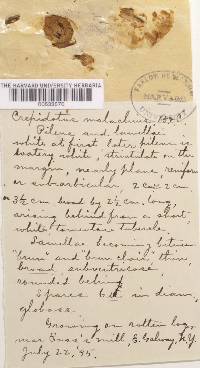 THE HARVARD UNIVERSITY HERBARIA
Crepidotus malachius B & C
Pileus and lamellae
white at first later pileus is
watery white, striatulate on the
margin, nearly plane reniform
or suborbicular, 2 cm × 2 cm.
3½ cm broad by 2½ cm long,
arising behind from a short
white tomentose tubercle.
Lamellae becoming between
"brun" and "brun clair" thin,
broad, subventricose
rounded behind
Spores 6 in diam,
globose.
Growing on rotten log,
near mill, E. Galway, N.Y.
July 22, '95.